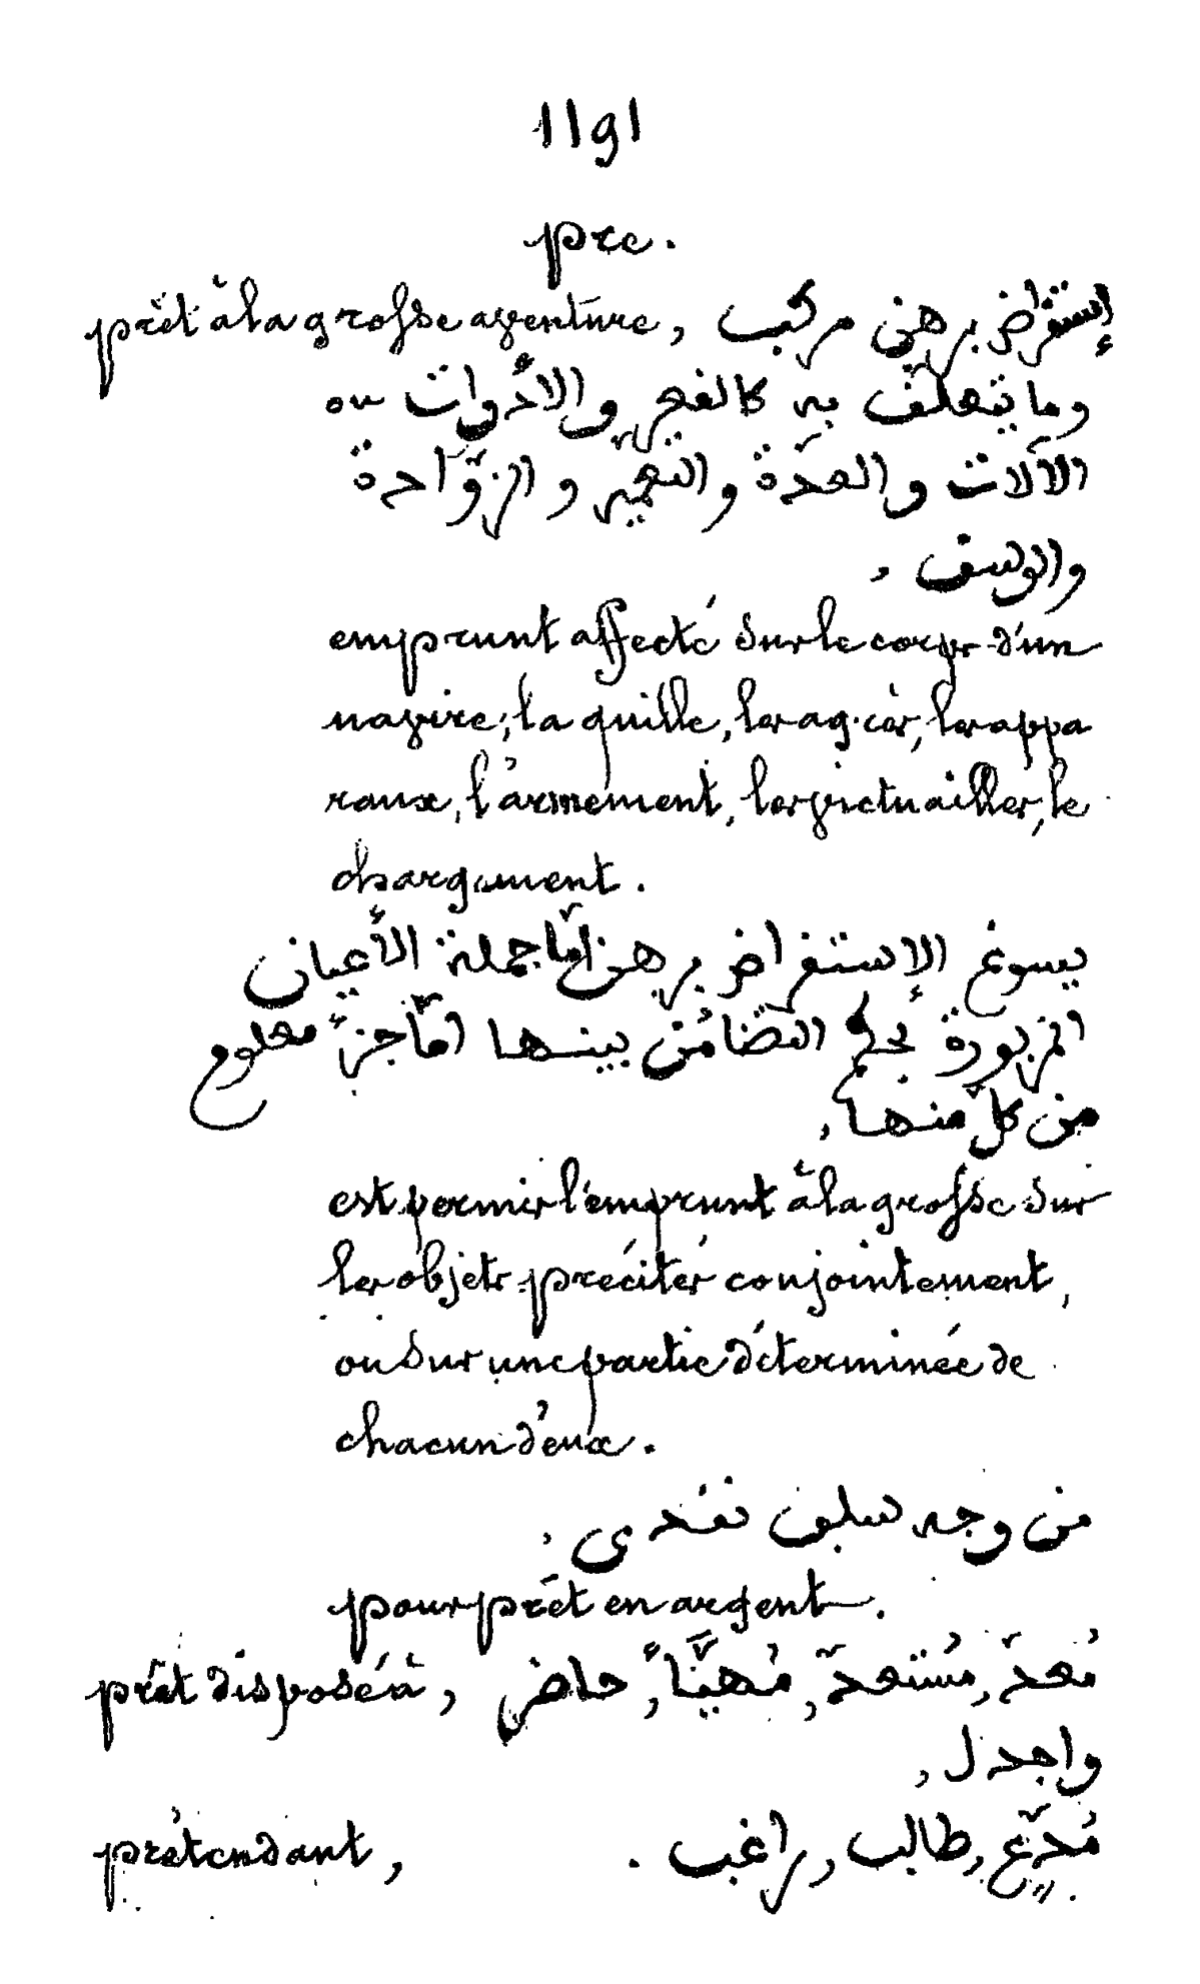 1191
pre.
prêt à la grosse aventure, إستقراض برهن مركب
وما يتعلق به كالفعر والأدوات ou
الآلات والعدّة والتعمير والزوّادة
والوسق,
emprunt affecté sur le corps d'un
navire; la quille, les agrès, les appa
raux, l'armement, les victuailles, le
chargement.
يسوغ الإستقراض برهن إمّا جملة الأعيان
المزبورة بحكم التضامُن بينها امّا جزءٌ معلوم
من كلّ منها,
est permis l'emprunt à la grosse sur
les objets précités conjointement,
ou sur une partie déterminée de
chacun d'eux.
من وجه سلف نقدى,
pour prêt en argent.
prêt disposé à, مُعدّ, مُستعدّ, مُهيَّأ, حاضر,
واجد ل,
prétendant, مُدّعٍ, طالب, راغب.